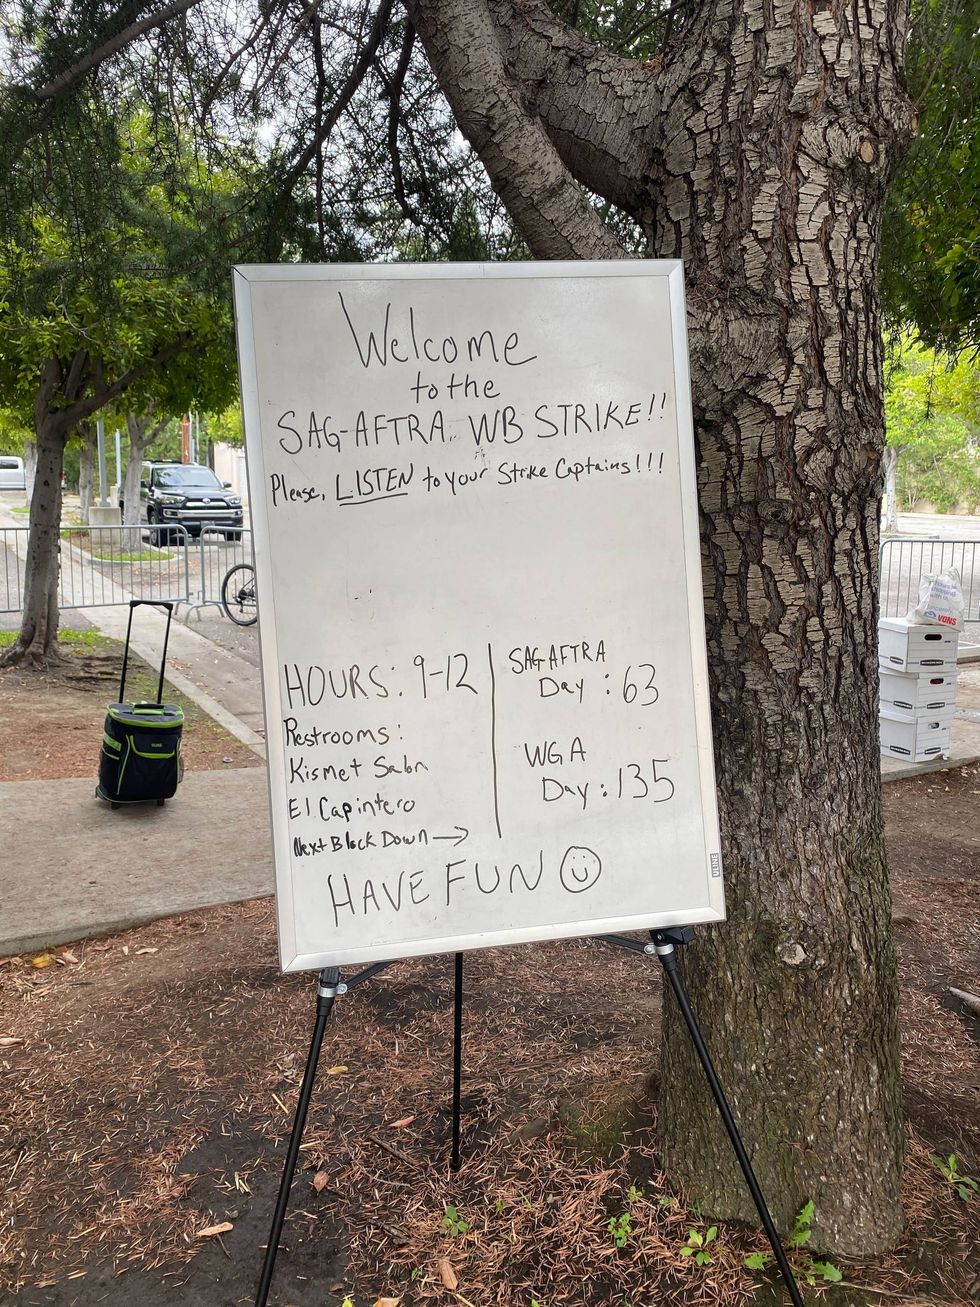 Welcome
to the
SAG-AFTRA WB STRIKE!!
Please, LISTEN to your Strike Captains!!!
HOURS: 9-12
Restrooms:
Kismet Salon
El Capintero
Next Block Down →
SAG AFTRA
Day: 63
WGA
Day: 135
HAVE FUN ☺
ULINE
VONS